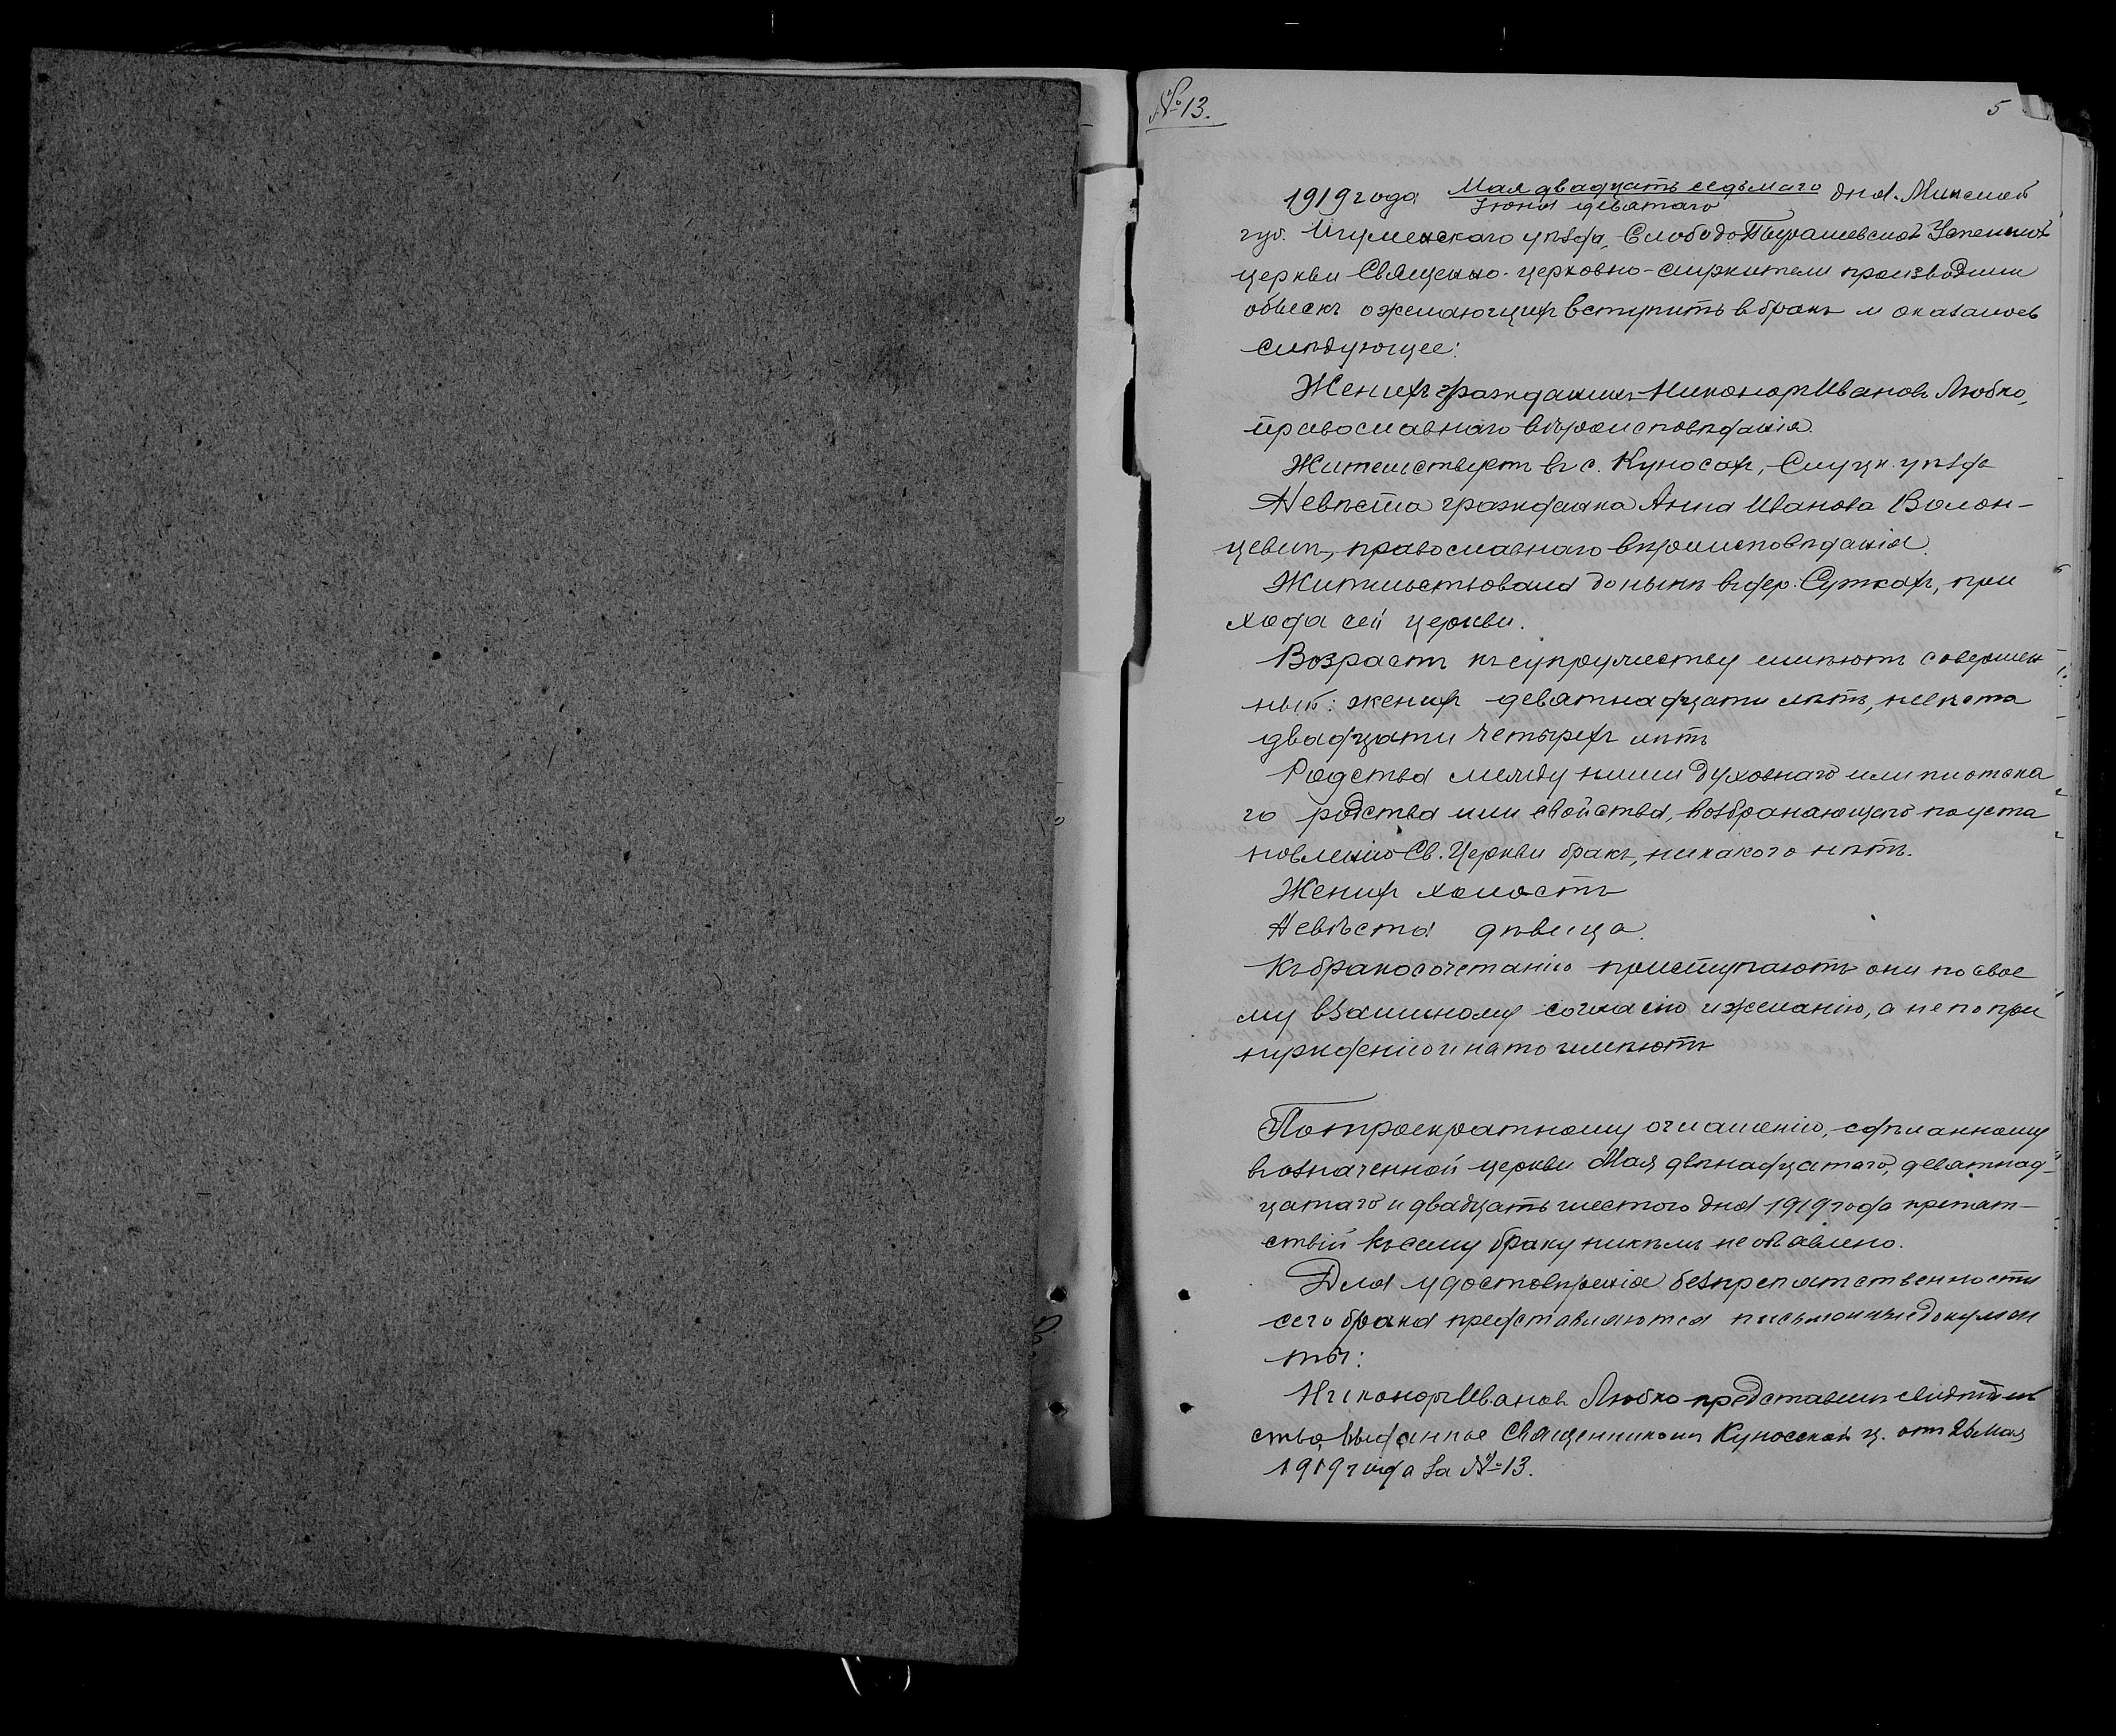 № 13.
5
1919 года Мая двадцать седьмаго дня. Минской
Іюня девятаго
губ. Игуменскаго уѣзда, Слободо-Пырашевской Успенской
церкви Священно-церковно-служители производили
обыскъ о желающихъ вступить въ бракъ и оказалось
слѣдующее:
Женихъ гражданинъ Никоноръ Ивановъ Любко,
православнаго вѣроисповѣданія.
Жительствуетъ въ с. Куносахъ, Слуцк. уѣзда
Невѣста гражданка Анна Иванова Волон-
цевичъ, православнаго вѣроисповѣданія.
Жительствовала до нынѣ въ дер. Суткахъ, при
хода сей церкви.
Возрастъ къ супружеству имѣютъ совершен
ный: женихъ девятнадцати лѣтъ, невѣста
двадцати четырехъ лѣтъ
Родства между ними духовнаго или плотска
го родства или свойства, возбраняющаго по уста
новленію Св. Церкви бракъ, никакого нѣтъ.
Женихъ холостъ
Невѣста дѣвица.
Къ бракосочетанію приступаютъ они по свое
му взаимному согласію и желанію, а не по при
нужденію и на то имѣютъ
По троекратному оглашенію, сдѣланному
въ означенной церкви Мая двѣнадцатаго, девятнад-
цатаго и двадцать шестого дня 1919 года препят-
ствій къ сему браку никѣмъ не объявлено.
Для удостовѣренія безпрепятственности
сего брака представляются письменные докумен
ты:
Никоноръ Ивановъ Любко представилъ свидѣтель
ство, выданное Священникомъ Куносской ц. отъ 26 Мая
1919 года за № 13.